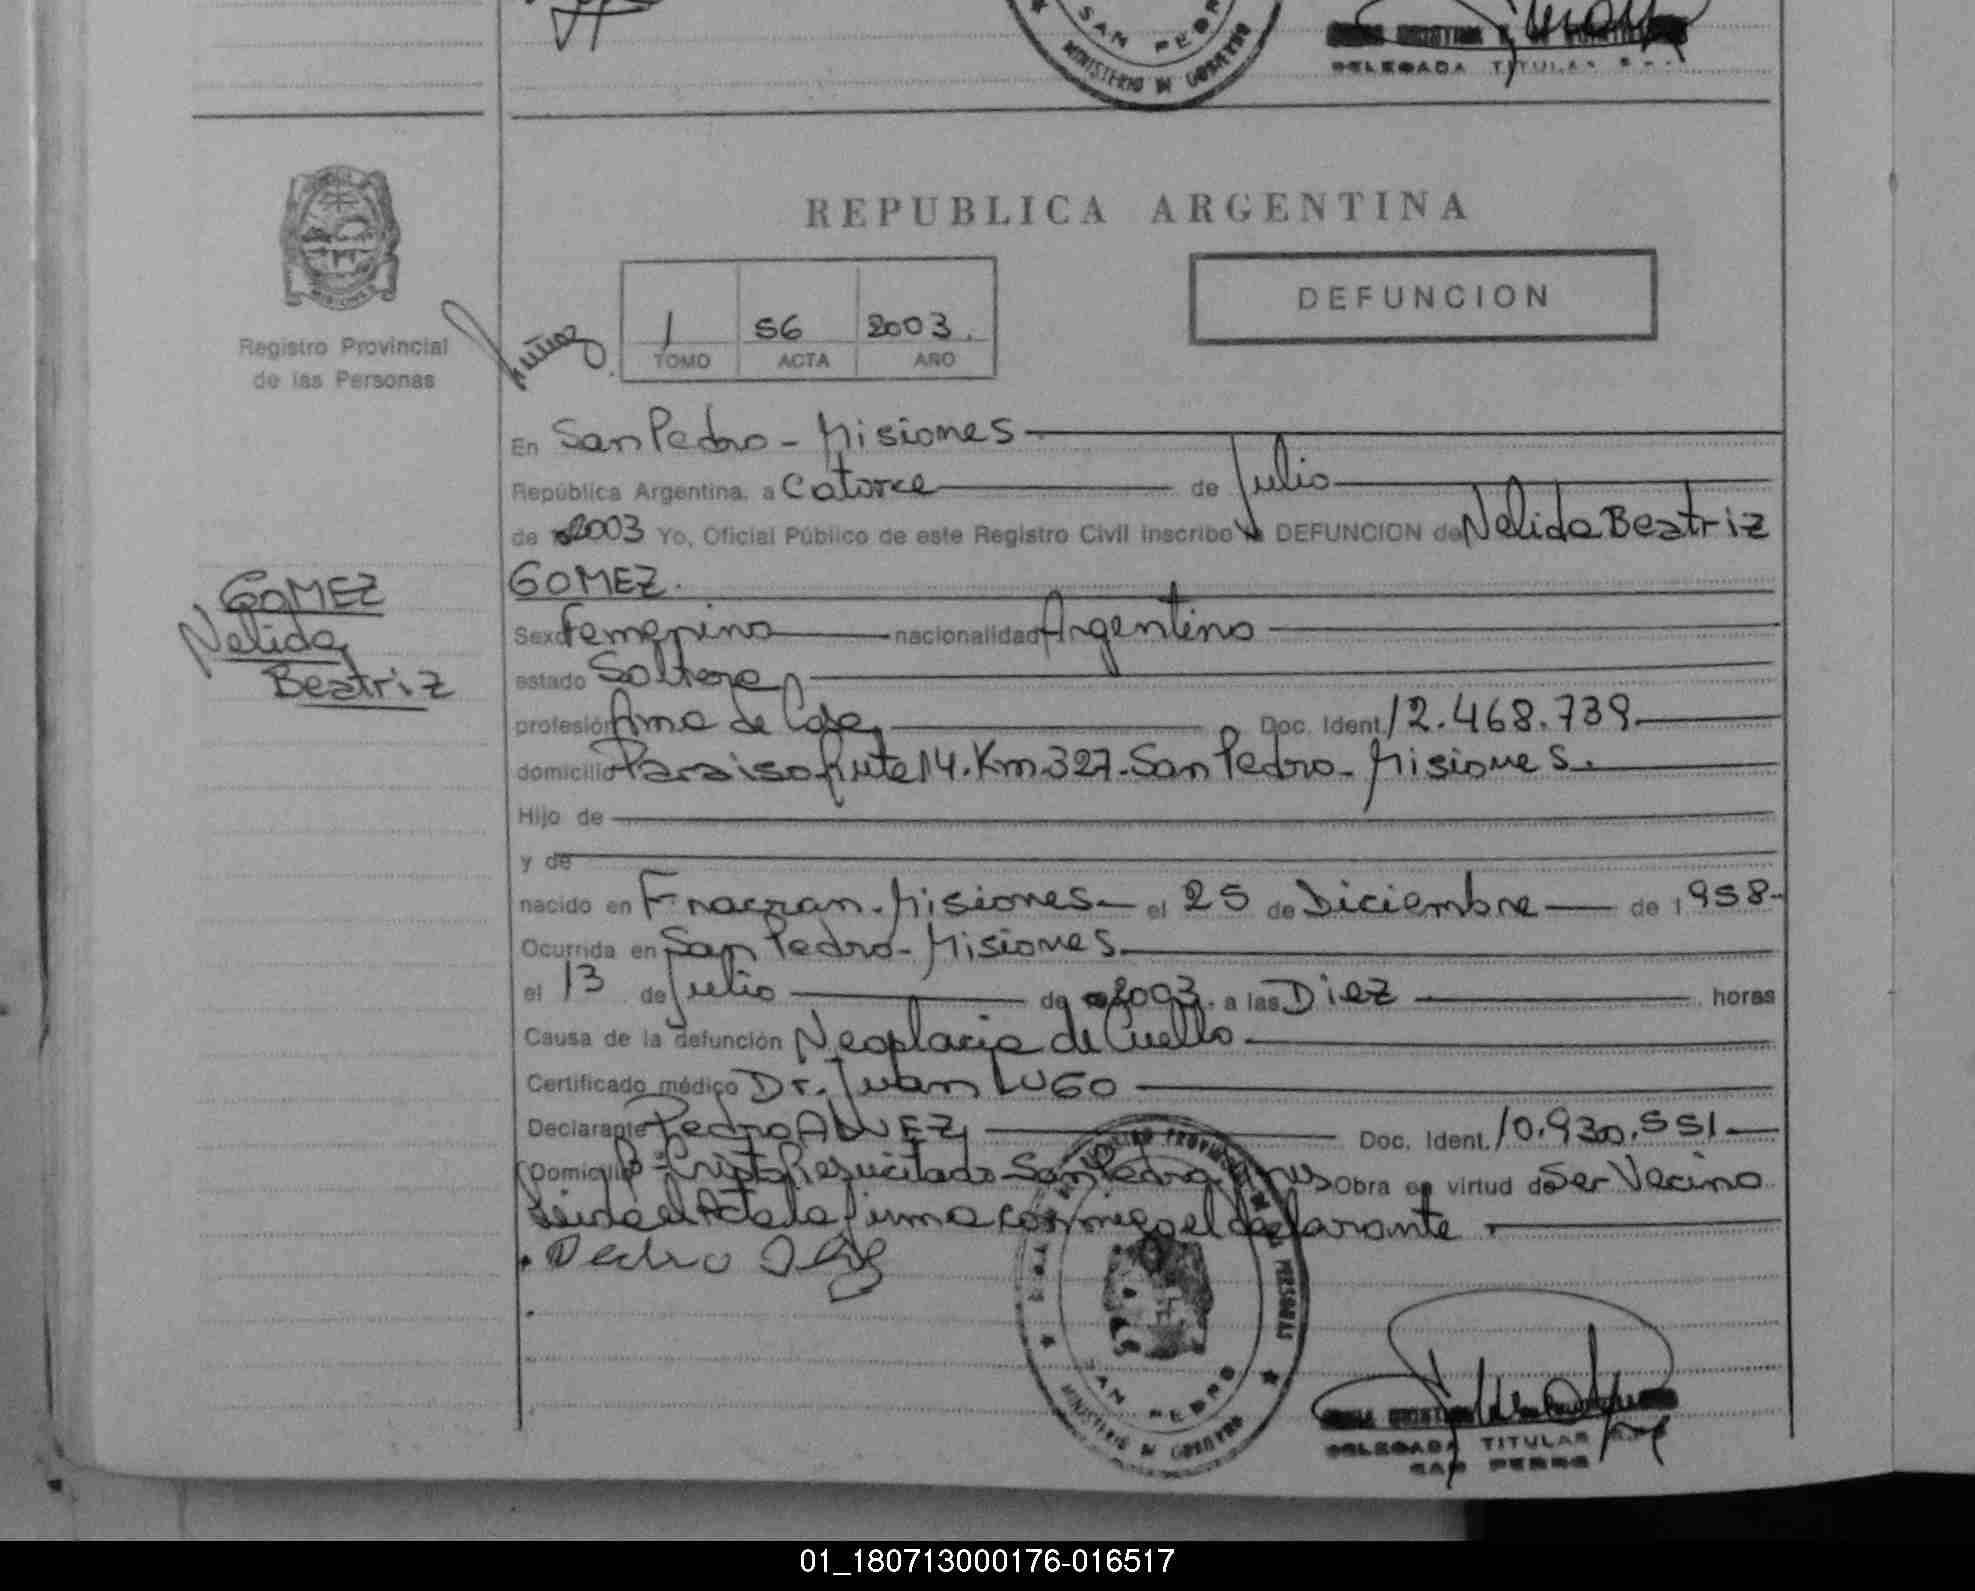 SAN PEDRO
MINISTERIO DE GOBIERNO
DELEGADA TITULAR
REPUBLICA ARGENTINA
DEFUNCION
1 56 2003.
TOMO ACTA AÑO
Registro Provincial
de las Personas
Muñoz
En San Pedro - Misiones
República Argentina, a Catorce de Julio
de 2003 Yo, Oficial Público de este Registro Civil inscribo la DEFUNCION de Nelida Beatriz
GOMEZ.
GOMEZ
Nelida
Beatriz
Sexo Femenino nacionalidad Argentino
estado Soltera
profesión Ama de Casa Doc. Ident. 12.468.739
domicilio Paraiso Ruta 14. Km 327 - San Pedro - Misiones.
Hijo de
y de
nacido en Fracran. Misiones el 25 de Diciembre de 1958-
Ocurrida en San Pedro - Misiones
el 13 de Julio de 2003. a las Diez horas
Causa de la defunción Neoplacia de Cuello
Certificado médico Dr. Juan LUGO
Declarante Pedro ALVEZ Doc. Ident. 10.930.551
Domicilio Bº Cristo Resucitado San Pedro Mnes Obra en virtud de Ser Vecino
Leida el Acta la firma conmigo el declarante.
Pedro
REGISTRO PROVINCIAL DE LAS PERSONAS
SAN PEDRO
MINISTERIO DE GOBIERNO
DELEGADA TITULAR
SAN PEDRO
01_180713000176-016517